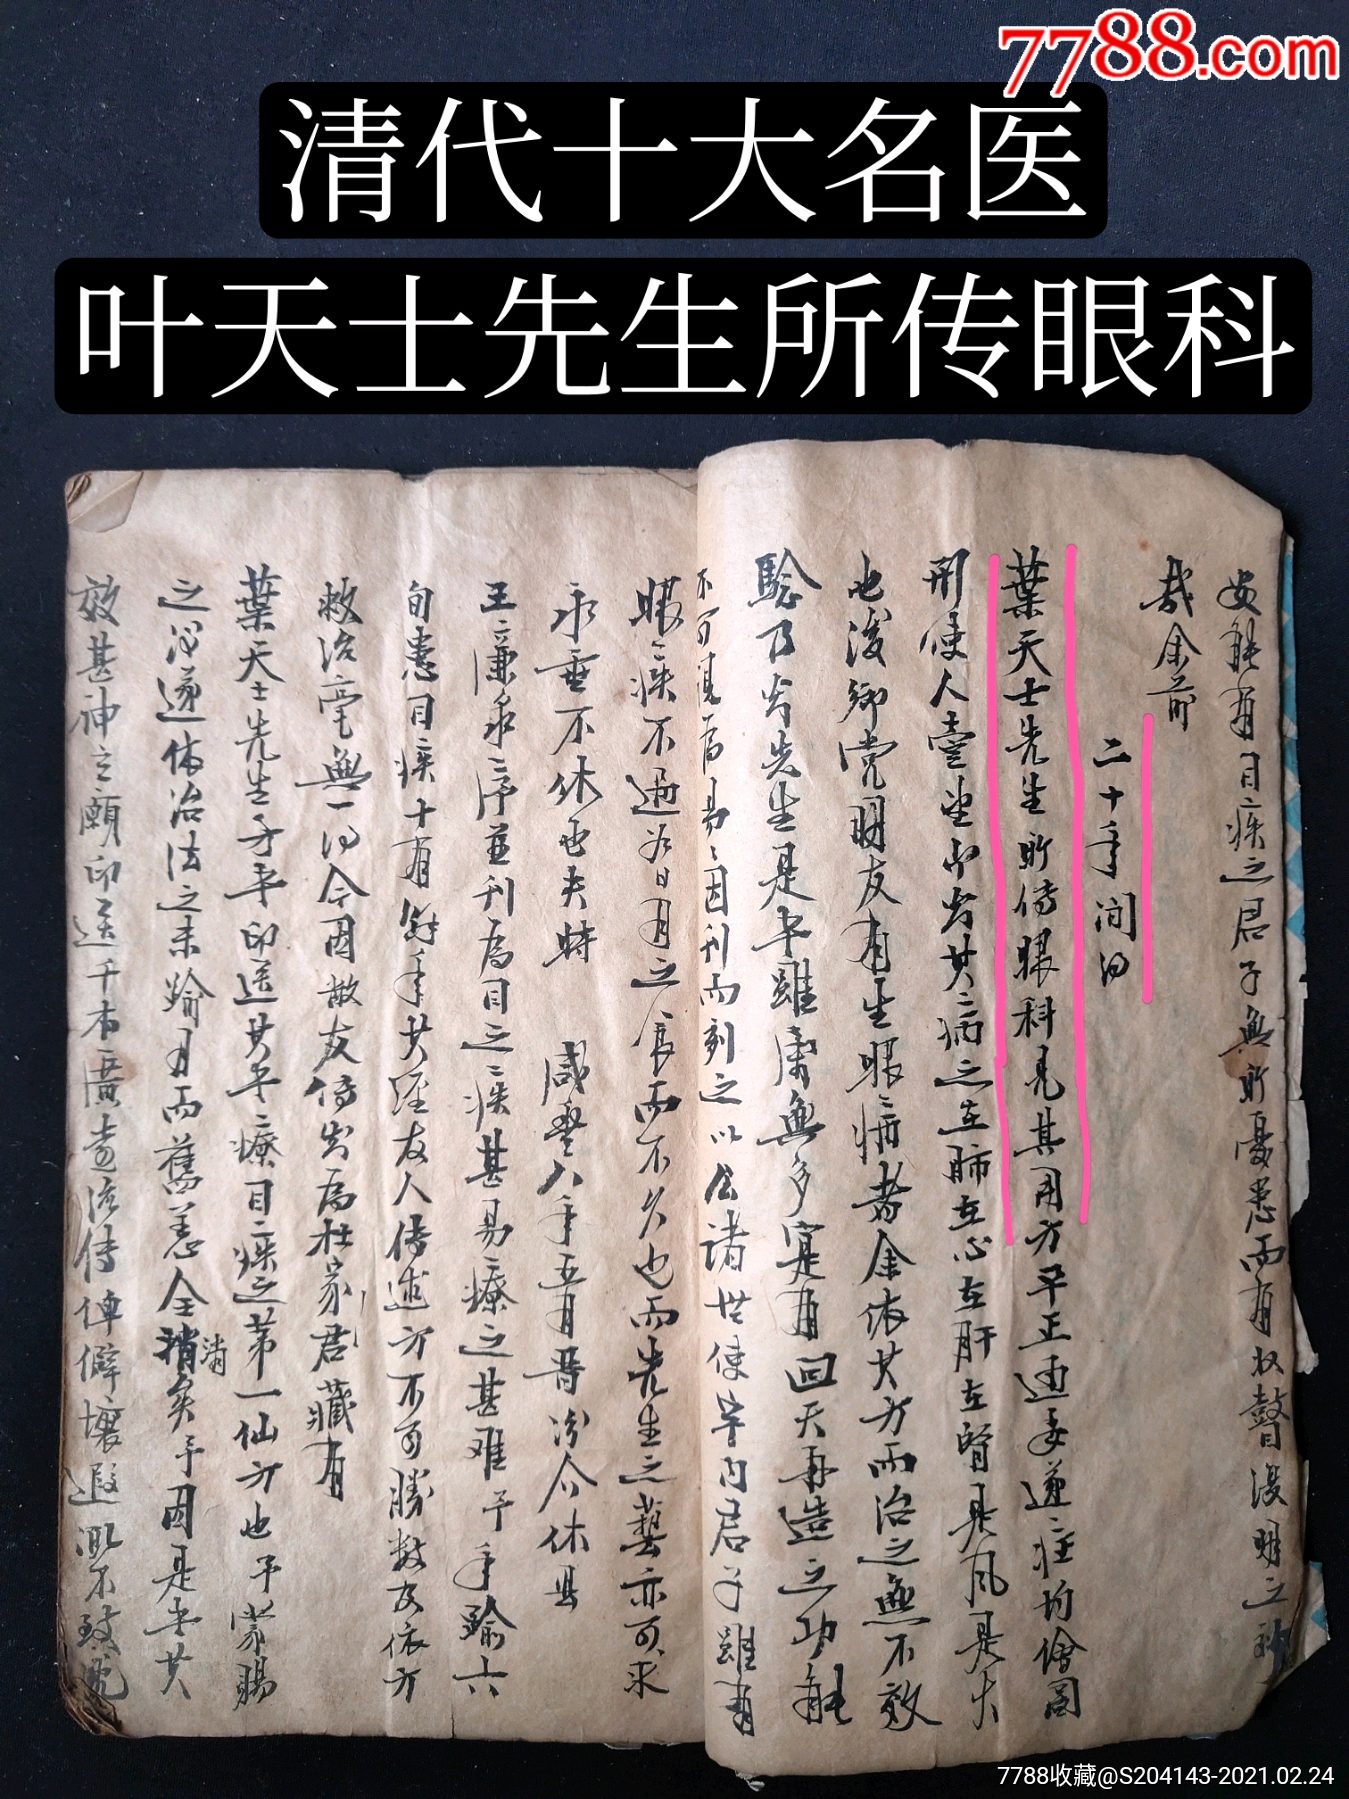 7788.com
清代十大名医
叶天士先生所传眼科
安能有目疾之君子無所憂患而有以瞽復明之
哉余前
二十年间得
葉天士先生所傳眼科見其用方平正通妥遂症均繪圖
形使人壹望而知其病之在肺在心在肝在腎是風是火
也後鄉党朋友有生眼病者余依其方而治之無不效
驗乃知先生是书雖属無多寔有回天再造之功能
不可複為易易因刊而刻之以公諸世使宇内君子雖有
眼疾不過为日月之食而不久也而先生之藝亦可永
永垂不休也夫時 咸豐八年五月晋汾介休县
王謙承序並刊為目之疾甚易療之甚难予年踰六
旬患目疾十有餘年共經友人傳述方不可勝數及依方
救治毫無一得今因敝友傳出為杜家君藏有
葉天士先生手书印送其书療目疾之第一仙方也予蒙賜
之後遂依治法之未踰月而舊恙全消矣予因是书其
消
效甚神之願印送千本廣为流傳俾僻壤遐陬不致
7788收藏@S204143-2021.02.24